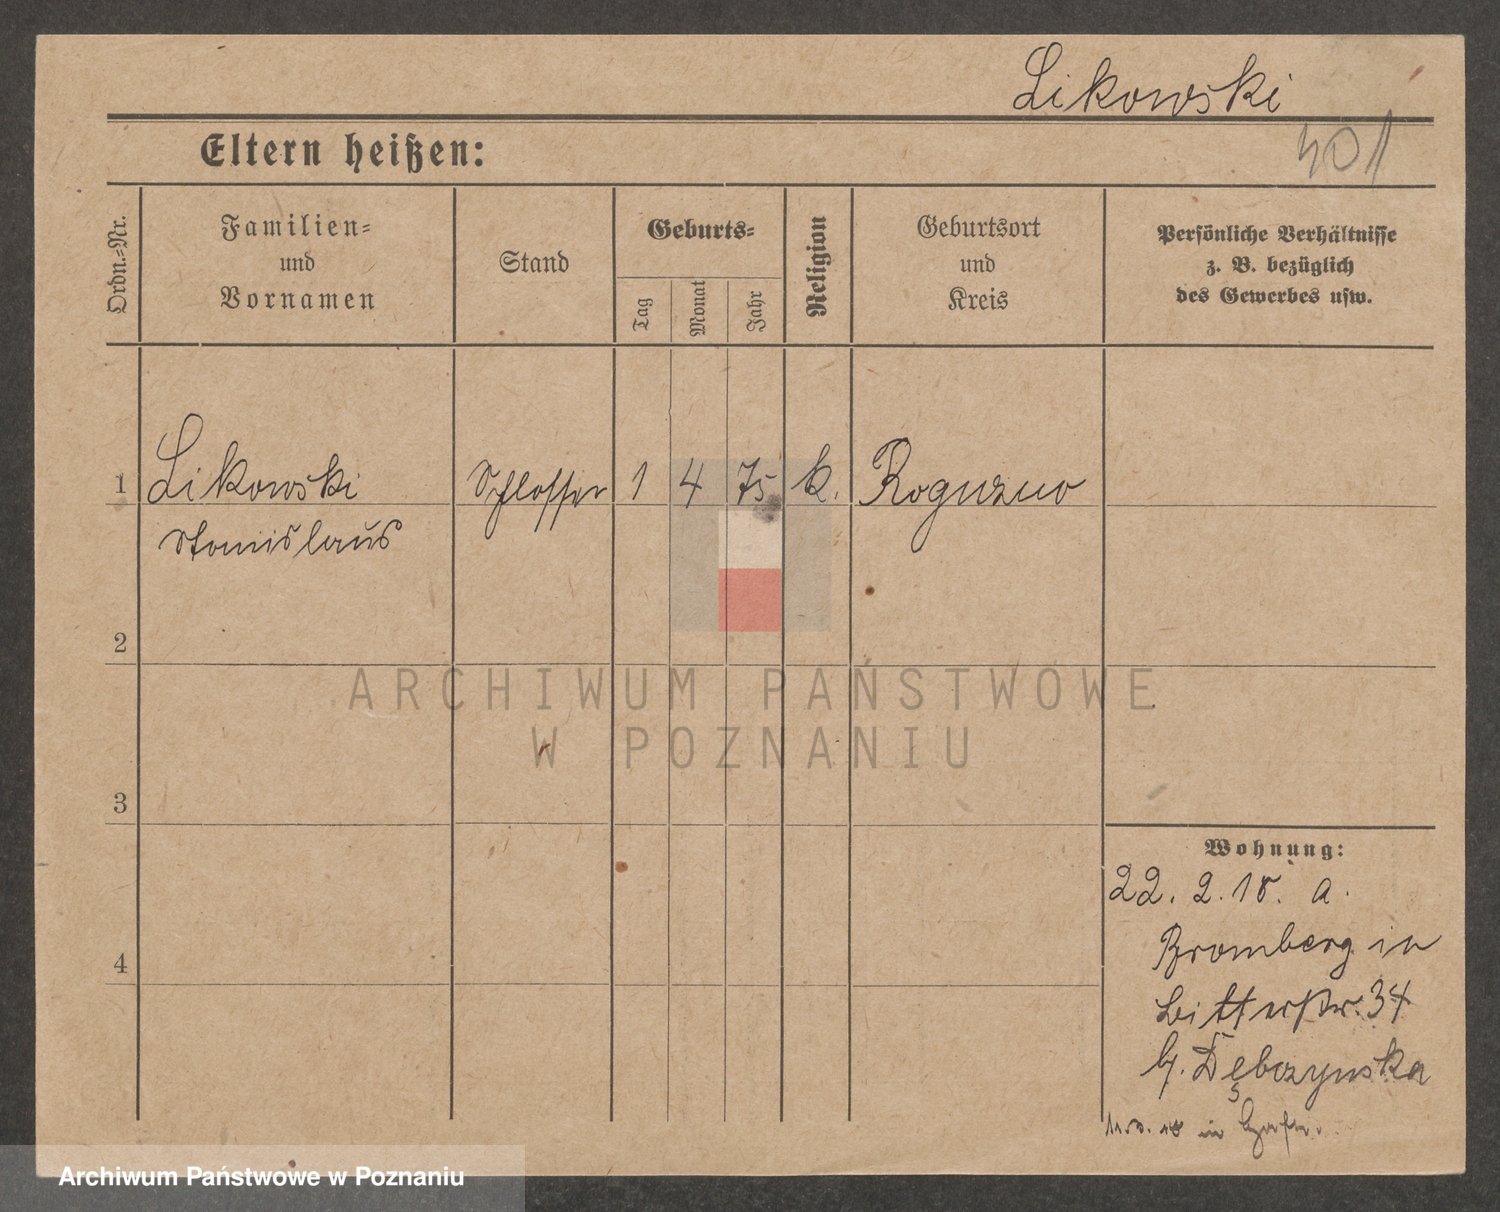 Likowski
401
Eltern heißen:
Ordn.=Nr.
Familien=
und
Vornamen
Stand
Geburts=
Tag
Monat
Jahr
Religion
Geburtsort
und
Kreis
Persönliche Verhältnisse
z. B. bezüglich
des Gewerbes usw.
1 Likowski Schlosser 1 4 75 k. Roguzno
Stanislaus
2
3
4
Wohnung:
22. 2. 18. a.
Bromberg in
Bitterstr. 34
b. Dębczynska
in
ARCHIWUM PAŃSTWOWE
W POZNANIU
Archiwum Państwowe w Poznaniu